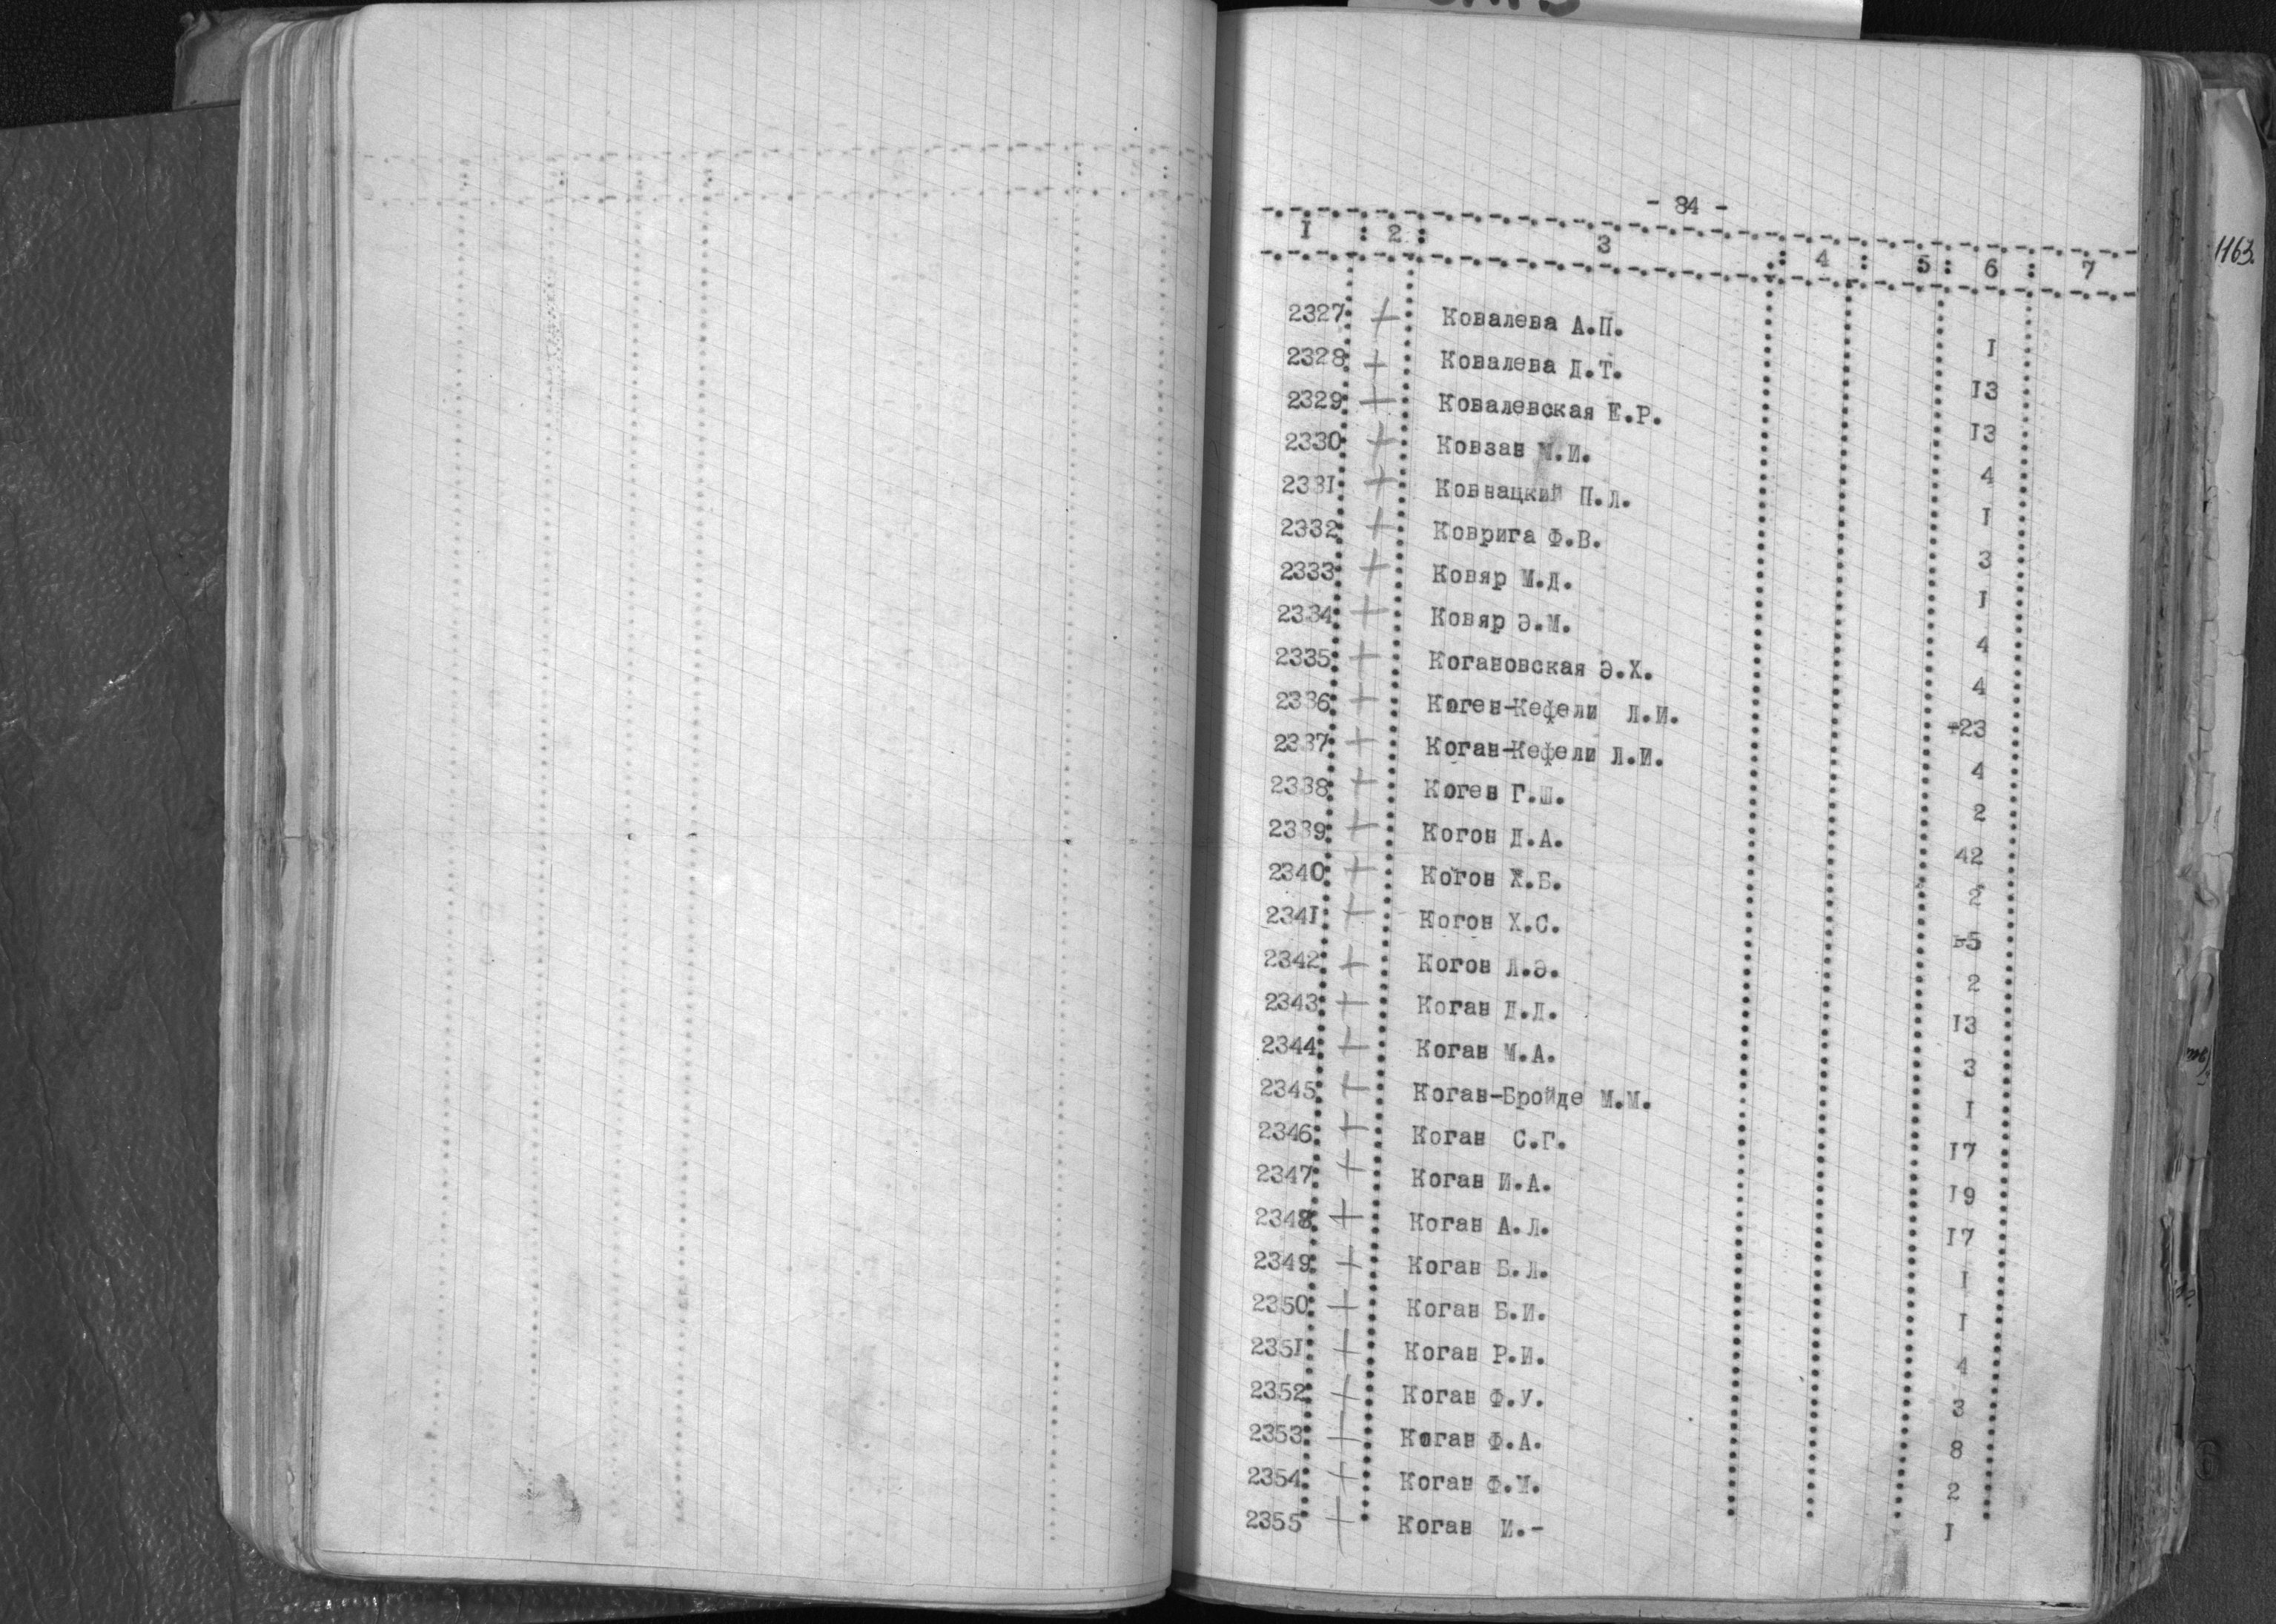 - 84 -
I : 2 : 3 : 4 : 5 : 6 : 7
1163.
2327 + Ковалева А.П. I
2328 + Ковалева Д.Т. I3
2329 + Ковалевская Е.Р. I3
2330 + Ковзан М.И. 4
2331 + Ковнацкий П.Л. I
2332 + Коврига Ф.В. 3
2333 + Ковяр М.Д. I
2334 + Ковяр Э.М. 4
2335 + Когановская Э.Х. 4
2336 + Коген-Кефели Л.И. -23
2337 + Коган-Кефели Л.И. 4
2338 + Коген Г.Ш. 2
2339 + Когон Д.А. 42
2340 + Когон Х.Б. 2
2341 + Когон Х.С. 5
2342 + Когон Л.Э. 2
2343 + Коган Д.Д. I3
2344 + Коган М.А. 3
2345 + Коган-Бройде М.М. I
2346 + Коган С.Г. I7
2347 + Коган И.А. I9
2348 + Коган А.Л. I7
2349 + Коган Б.Л. I
2350 + Коган Б.И. I
2351 + Коган Р.И. 4
2352 + Коган Ф.У. 3
2353 + Коган Ф.А. 8
2354 + Коган Ф.М. 2
2355 + Коган И.- I